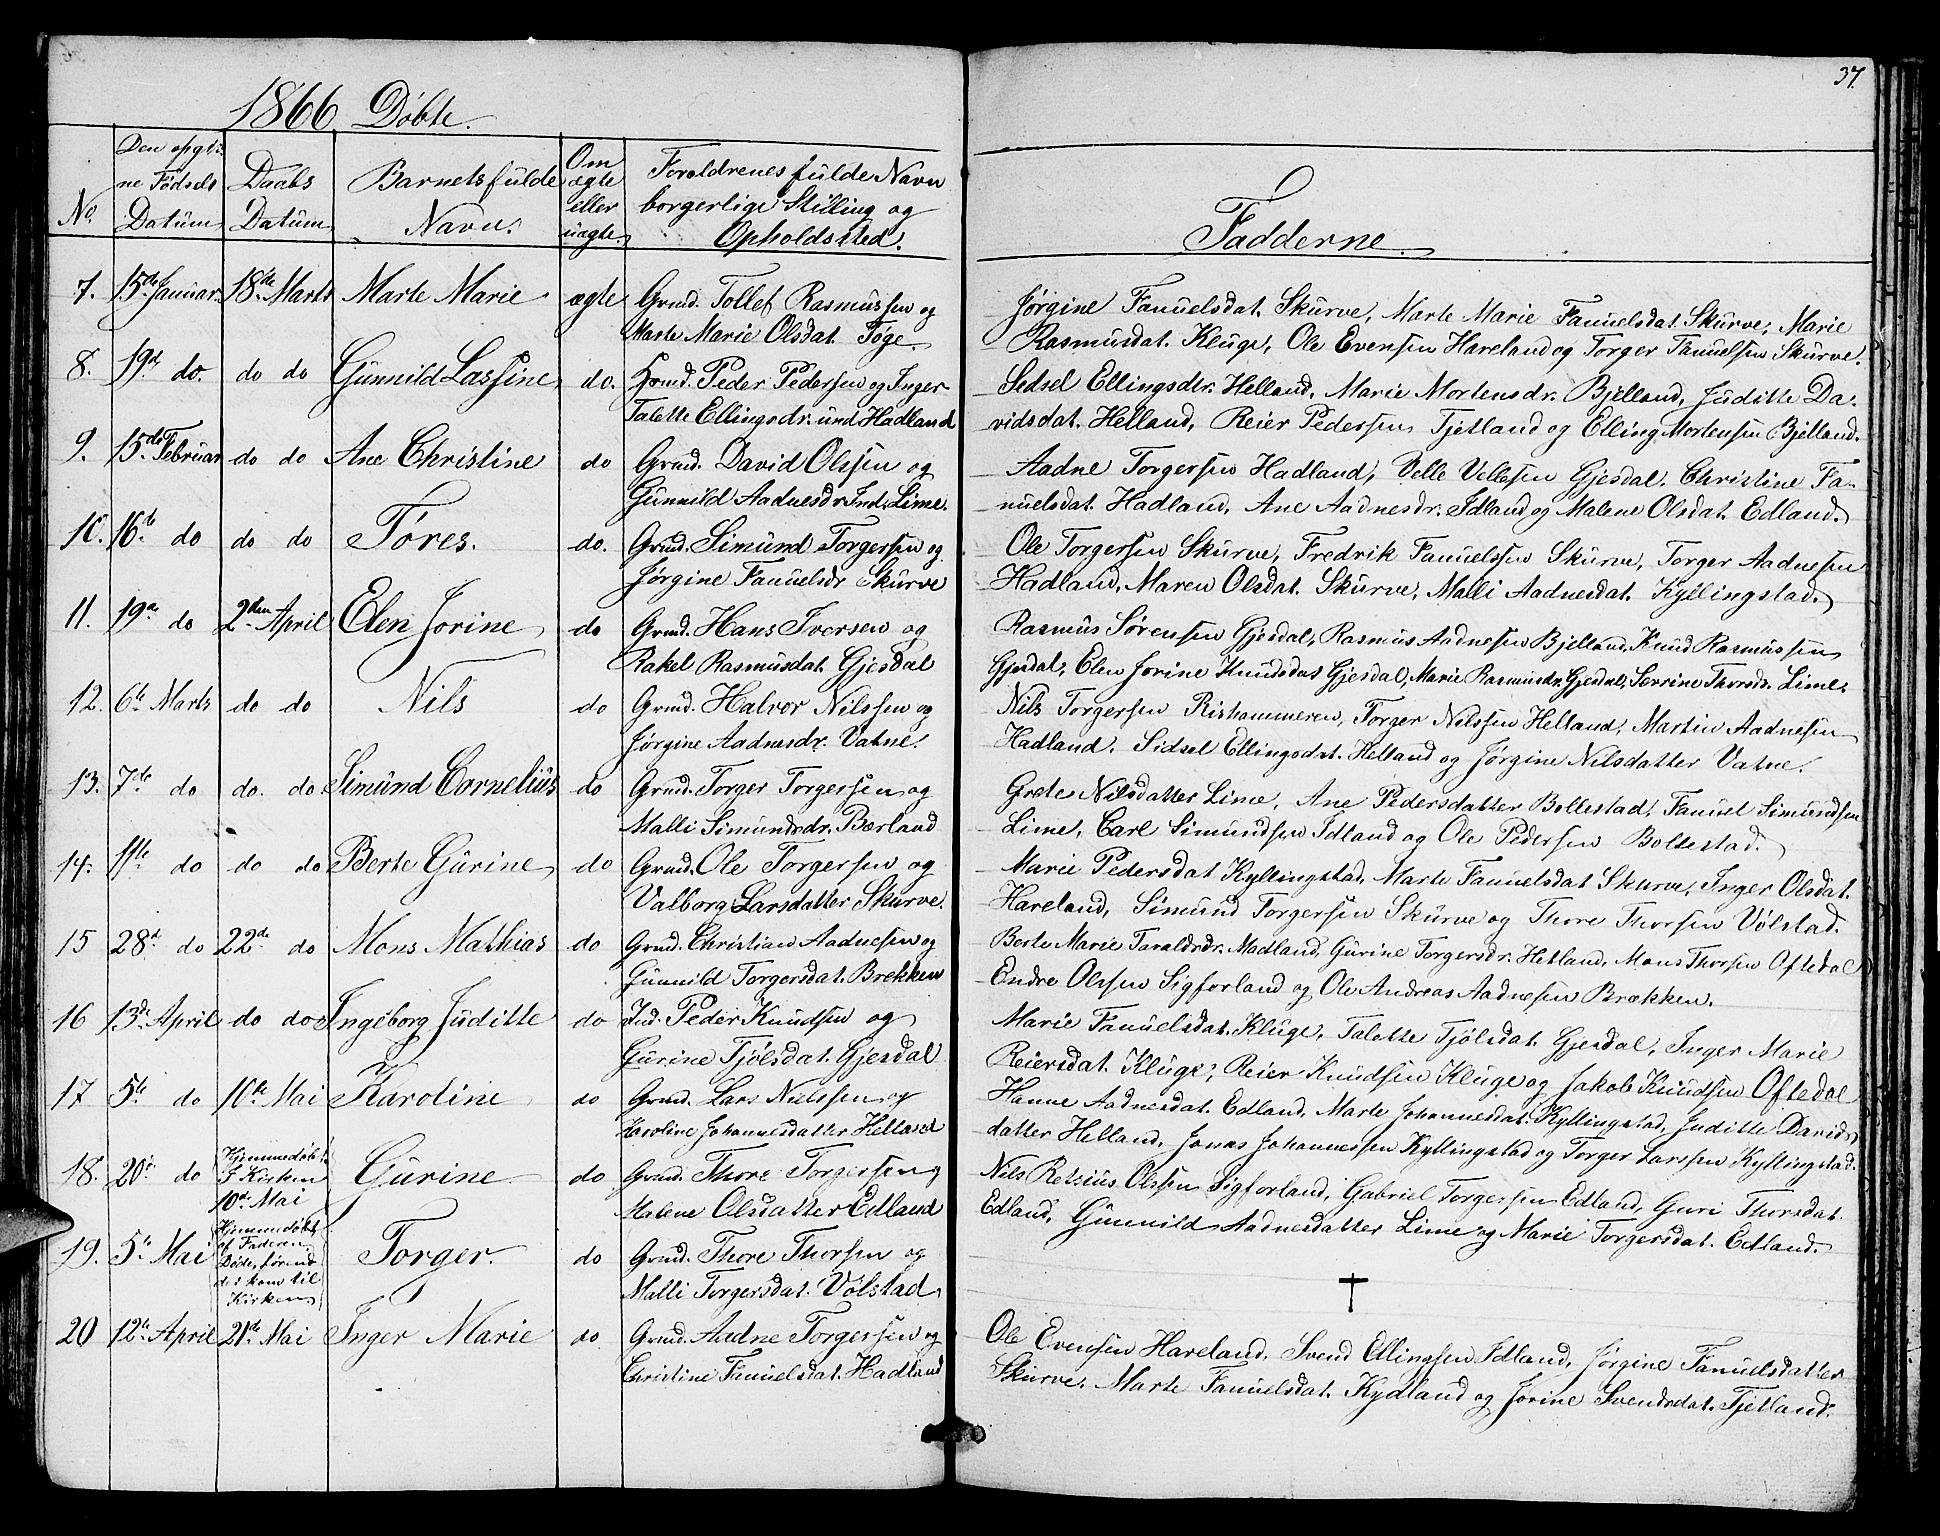 37.
1866 Döbte.
No.
Den opgiv
ne Födsels
Datum
Daabs
Datum
Barnets fulde
Navn.
Om
ægte
eller
uægte
Foreldrenes fulde Navn
borgerlige Stilling og
Opholdssted.
Fadderne.
7. 15de Januar 18de Marts Marte Marie ægte Grmd. Tollef Rasmussen og
Marte Marie Olsdat. Töge.
Jörgine Fanuelsdat. Skurve, Marte Marie Fanuelsdat. Skurve, Marie
Rasmusdat. Kluge, Ole Evensen Hareland og Torger Fanuelsen Skurve.
8. 19de do. do do Gunnild Lassine do. Hsmd. Peder Pedersen og Inger
Talette Ellingsdr. und. Hadland
Sedsel Ellingsdtr. Helland, Marie Mortensdr. Bjelland, Juditte Da-
vidsdat. Helland, Reier Pedersen Tjetland og Elling Mortensen Bjelland.
9. 15de Februar do do Ane Christine do Grmd. David Olssen og
Gunnild Aadnesdr. Ind. Lime.
Aadne Torgersen Hadland, Velle Vellesen Gjesdal, Christine Fa-
nuelsdat. Hadland, Ane Aadnesdr. Idland og Malene Olsdat. Edland.
10. 16de do do do Töres. do. Grmd. Simund Torgersen og
Jörgine Fanuelsdr Skurve
Ole Torgersen Skurve, Fredrik Fanuelssen Skurve, Torger Aadnesen
Hadland, Maren Olsdat. Skurve, Malli Aadnesdat. Kyllingstad.
11. 19de do 2den April Elen Jorine do Grmd. Hans Iversen og
Rakel Rasmusdat. Gjesdal
Rasmus Sörensen Gjesdal, Rasmus Aadnesen Bjelland, Knud Rasmussen
Gjesdal, Elen Jorine Knudsdat Gjesdal, Marie Rasmusdr. Gjesdal, Serrine Thorsdr. Lime.
12. 6te Marts do do Nils do Grmd. Halvor Nilssen og
Jörgine Aadnesdr. Vatne.
Nils Torgersen Rishammeren, Torger Nilssen Helland, Martin Aadnesen
Hadland, Sidsel Ellingsdat. Helland og Jörgine Nilsdatter Vatne.
13. 7de do do. do Simund Cornelius do Grmd. Torger Torgersen og
Malli Simundsdr. Bærland
Grete Nilsdatter Lime, Ane Pedersdatter Bollestad, Fanuel Simundsen
Lime, Carl Simundsen Idland og Ole Pedersen Bollestad.
14. 11te do do do Berte Gurine do Grmd. Ole Torgersen og
Valborg Larsdatter Skurve.
Marie Pedersdat Kyllingstad, Marte Fanuelsdat Skurve, Inger Olsdat.
Hareland, Simund Torgersen Skurve og Thore Thorsen Völstad.
15 28de do 22de do Mons Mathias do Grmd. Christian Aadnesen og
Gunnild Torgersdat. Brekken
Berte Marie Taraldsdr. Madland, Gurine Torgersdr. Hetland, Mons Thorsen Oftedal
Endre Olssen Sigforland og Ole Andreas Aadnesen Brækken.
16 13de April do do Ingeborg Juditte do Ind. Peder Knudsen og
Gurine Tjölsdat. Gjesdal
Marie Fanuelsdat. Kluge, Talette Tjölsdat. Gjesdal, Inger Marie
Reiersdat. Kluge, Reier Knudsen Kluge og Jakob Knudsen Oftedal
17 5te do 10de Mai Karoline do Grmd. Lars Nielssen og
Karoline Johannesdatter Helland
Hanne Aadnesdat. Edland, Marte Johannesdat. Kyllingstad, Juditte Davids
datter Helland, Jonas Johannessen Kyllingstad og Torger Larssen Kyllingstad.
18. 20de do Hjemmedöbt
I Kirken
10de Mai
Gurine do Grmd. Thore Torgersen og
Malene Olsdatter Edland
Nils Retzius Olssen Sigforland, Gabriel Torgersen Edland, Guri Thorsdat.
Edland, Gunnild Aadnesdatter Lime og Marie Torgersdat. Edland.
19. 5te Mai Hjemmedöbt
af Faderen
Döde, förend
det kom til
Kirken
Torger. do Grmd. Thore Thorsen og
Malli Torgersdat. Völstad
†
20 12te April 21de Mai Inger Marie do Grmd. Aadne Torgersen og
Christine Fanuelsdat. Hadland
Ole Evensen Hareland, Svend Ellingsen Idland, Jörgine Fanuelsdatter
Skurve, Marte Fanuelsdat. Kydland og Jorine Svendsdat. Tjetland.